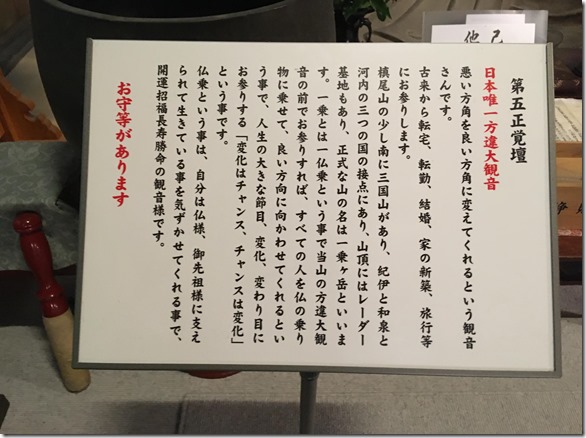 他 己
第五正覚壇
日本唯一方違大観音
悪い方角を良い方角に変えてくれるという観音
さんです。
古来から転宅、転勤、結婚、家の新築、旅行等
にお参りします。
槙尾山の少し南に三国山があり、紀伊と和泉と
河内の三つの国の接点にあり、山頂にはレーダー
基地もあり、正式な山の名は一乗ヶ岳といいま
す。一乗とは一仏乗という事で当山の方違大観
音の前でお参りすれば、すべての人を仏の乗り
物に乗せて、良い方向に向かわせてくれるとい
う事で、人生の大きな節目、変化、変わり目に
お参りする「変化はチャンス、チャンスは変化」
という事です。
仏乗という事は、自分は仏様、御先祖様に支え
られて生きている事を気ずかせてくれる事で、
開運招福長寿勝命の観音様です。
お守等があります